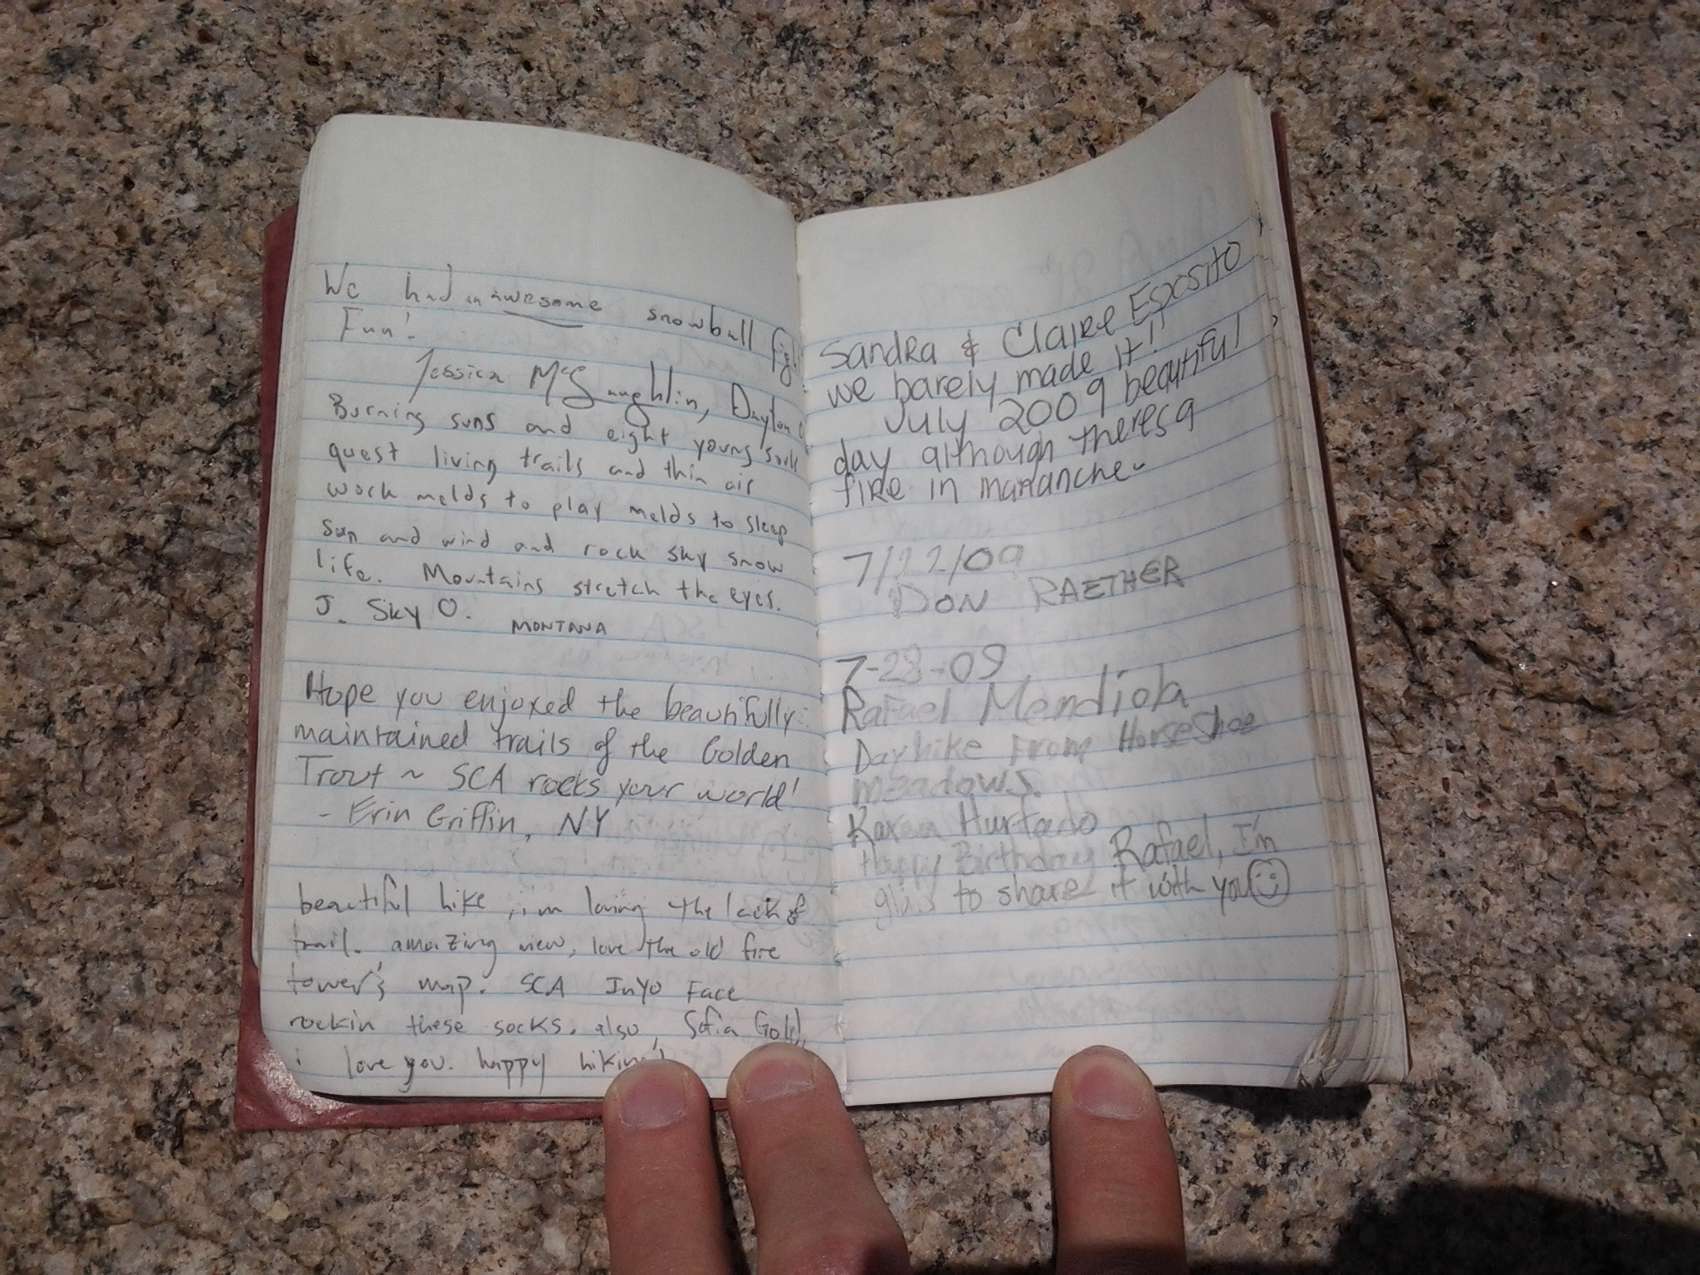 We had an awesome snowball fig
Fun!
Jessica McLaughlin, Dayton
Burning suns and eight young souls
quest living trails and thin air
work melds to play melds to sleep
sun and wind and rock sky snow
life. Mountains stretch the eyes.
J. Sky O. MONTANA
Hope you enjoxed the beautifully
maintained trails of the Golden
Trout ~ SCA rocks your world!
- Erin Griffin, NY
beautiful hike, i'm loving the lack of
trail. amazing view, love the old fire
tower's map. SCA Inyo Face
rockin these socks. also, Sofia Gold,
i love you. happy hiking!
Sandra & Claire Esposito
we barely made it!!
July 2009 beautiful
day although theres a
fire in
7/22/09
DON RAETHER
7-23-09
Rafael Mendiola
Dayhike From HorseShoe
meadows.
Karen Hurtado
Happy Birthday Rafael, I'm
glad to share it with you☺